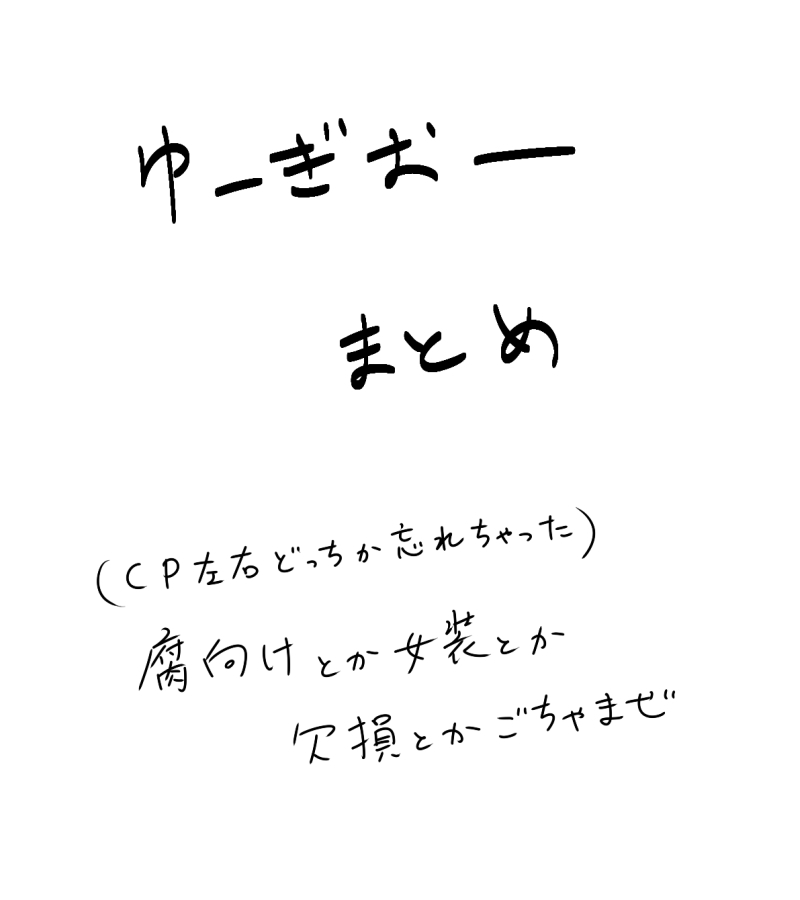 ゆーぎおー
まとめ
(CP左右どっちか忘れちゃった)
腐向けとか女装とか
欠損とかごちゃまぜ